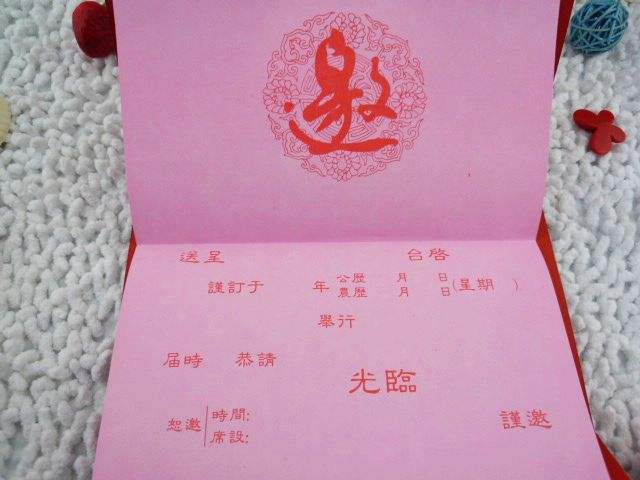 邀
送呈 台啓
謹訂于 年 公歷 月 日 (星期 )
農歷 月 日
舉行
届時 恭請
光臨
恕邀 時間:
席設:
謹邀